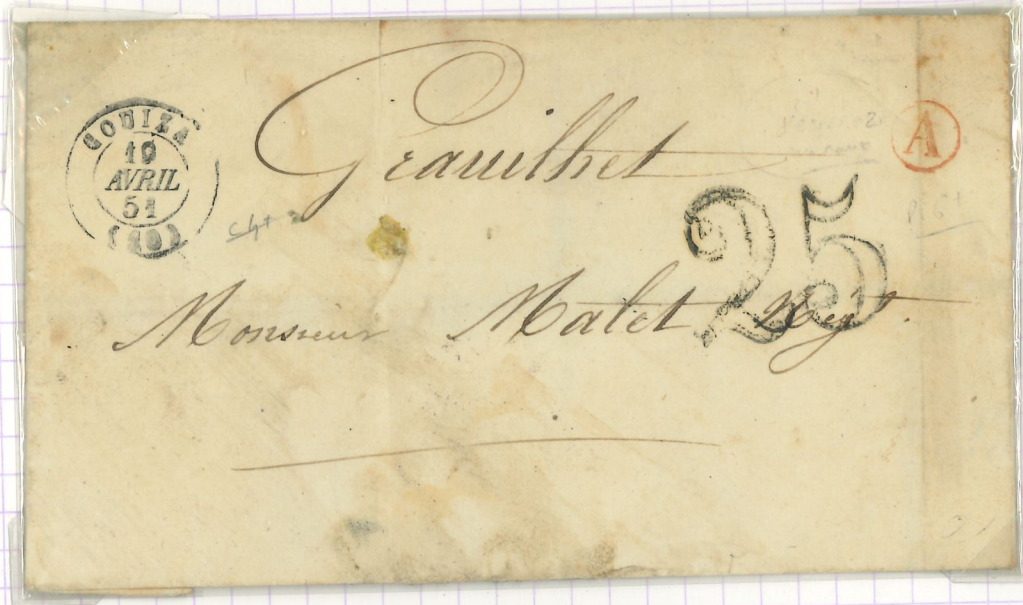 COUIZA
19
AVRIL
51
(10)
Grauilhet
A
25
Monsieur Malet Negt.